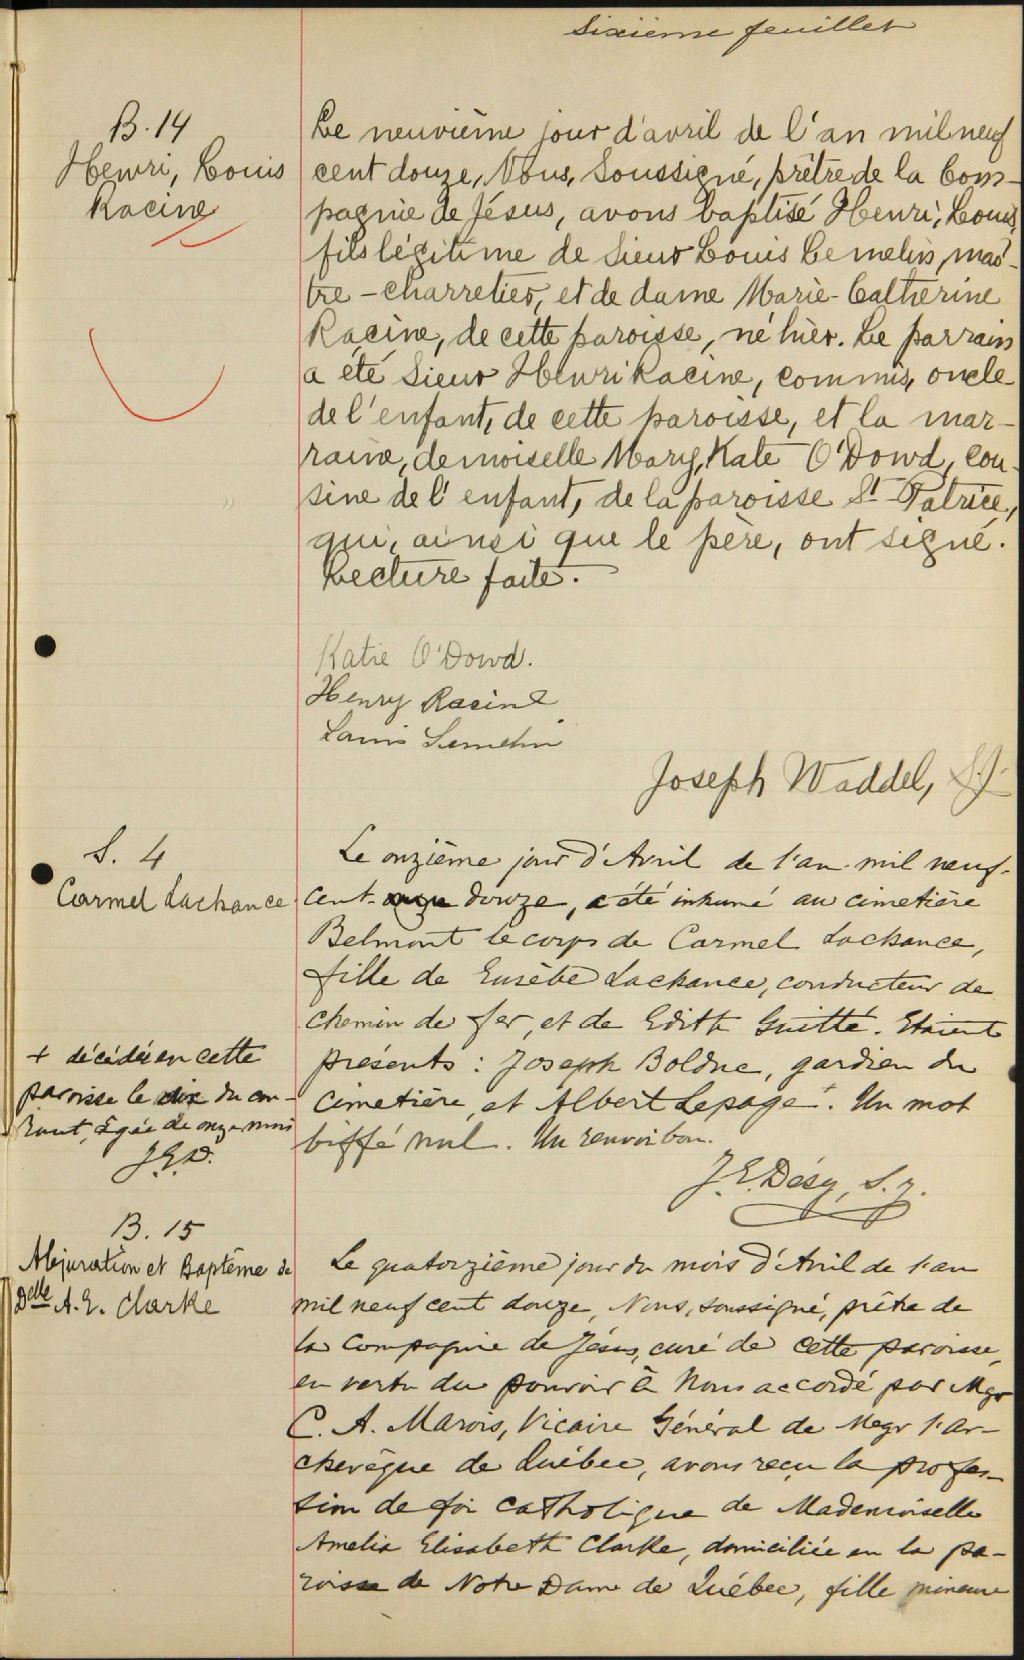 Sixième feuillet
B. 14
Henri, Louis
Racine
Le neuvième jour d'avril de l'an mil neuf
cent douze, Nous, Soussigné, prêtre de la Com-
pagnie de Jésus, avons baptisé Henri, Louis,
fils légitime de Sieur Louis Lemelin, maî-
tre-charretier, et de dame Marie-Catherine
Racine, de cette paroisse, né hier. Le parrain
a été Sieur Henri Racine, commis, oncle
de l'enfant, de cette paroisse, et la mar-
raine, demoiselle Mary, Kate O'Dowd, cou-
sine de l'enfant, de la paroisse St-Patrice,
qui, ainsi que le père, ont signé.
Lecture faite.
Katie O'Dowd.
Henry Racine
Louis Lemelin
Joseph Waddel, S.J.
S. 4
Carmel Lachance
Le onzième jour d'Avril de l'an mil neuf-
cent onze douze, a été inhumé au cimetière
Belmont le corps de Carmel Lachance,
fille de Eusèbe Lachance, conducteur de
chemin de fer, et de Edith Guitté. Etaient
présents : Joseph Bolduc, gardien du
cimetière, et Albert Lepage +. Un mot
biffé nul. Un renvoi bon.
J. E. Désy, S. J.
+ décédée en cette
paroisse le dix du cou-
rant, âgée de onze mois
J.E.D.
B. 15
Abjuration et Baptême de
Delle A. E. Clarke
Le quatorzième jour du mois d'Avril de l'an
mil neuf cent douze, Nous, soussigné, prêtre de
la Compagnie de Jésus, curé de cette paroisse,
en vertu du pouvoir à Nous accordé par Mgr
C. A. Marois, Vicaire Général de Megr l'Ar-
chevêque de Québec, avons reçu la profes-
sion de foi catholique de Mademoiselle
Amelia Elisabeth Clarke, domiciliée en la pa-
roisse de Notre Dame de Québec, fille mineure